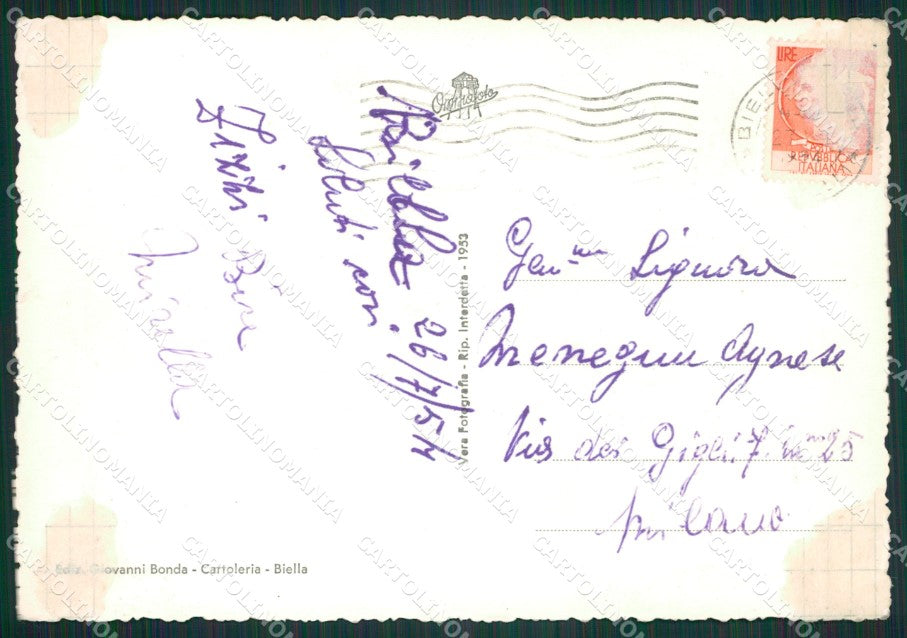 Biella 26/7/54
Saluti con
Zizzi Bine
Mirella
Gen.ma Signora
Meneguu Agnese
Via dei Gigli 7
Milano
Vera Fotografia - Rip. Interdetta - 1953
Ediz. Giovanni Bonda - Cartoleria - Biella
LIRE
REPVBBLICA
ITALIANA
BIEL
CARTOLINOMANIA